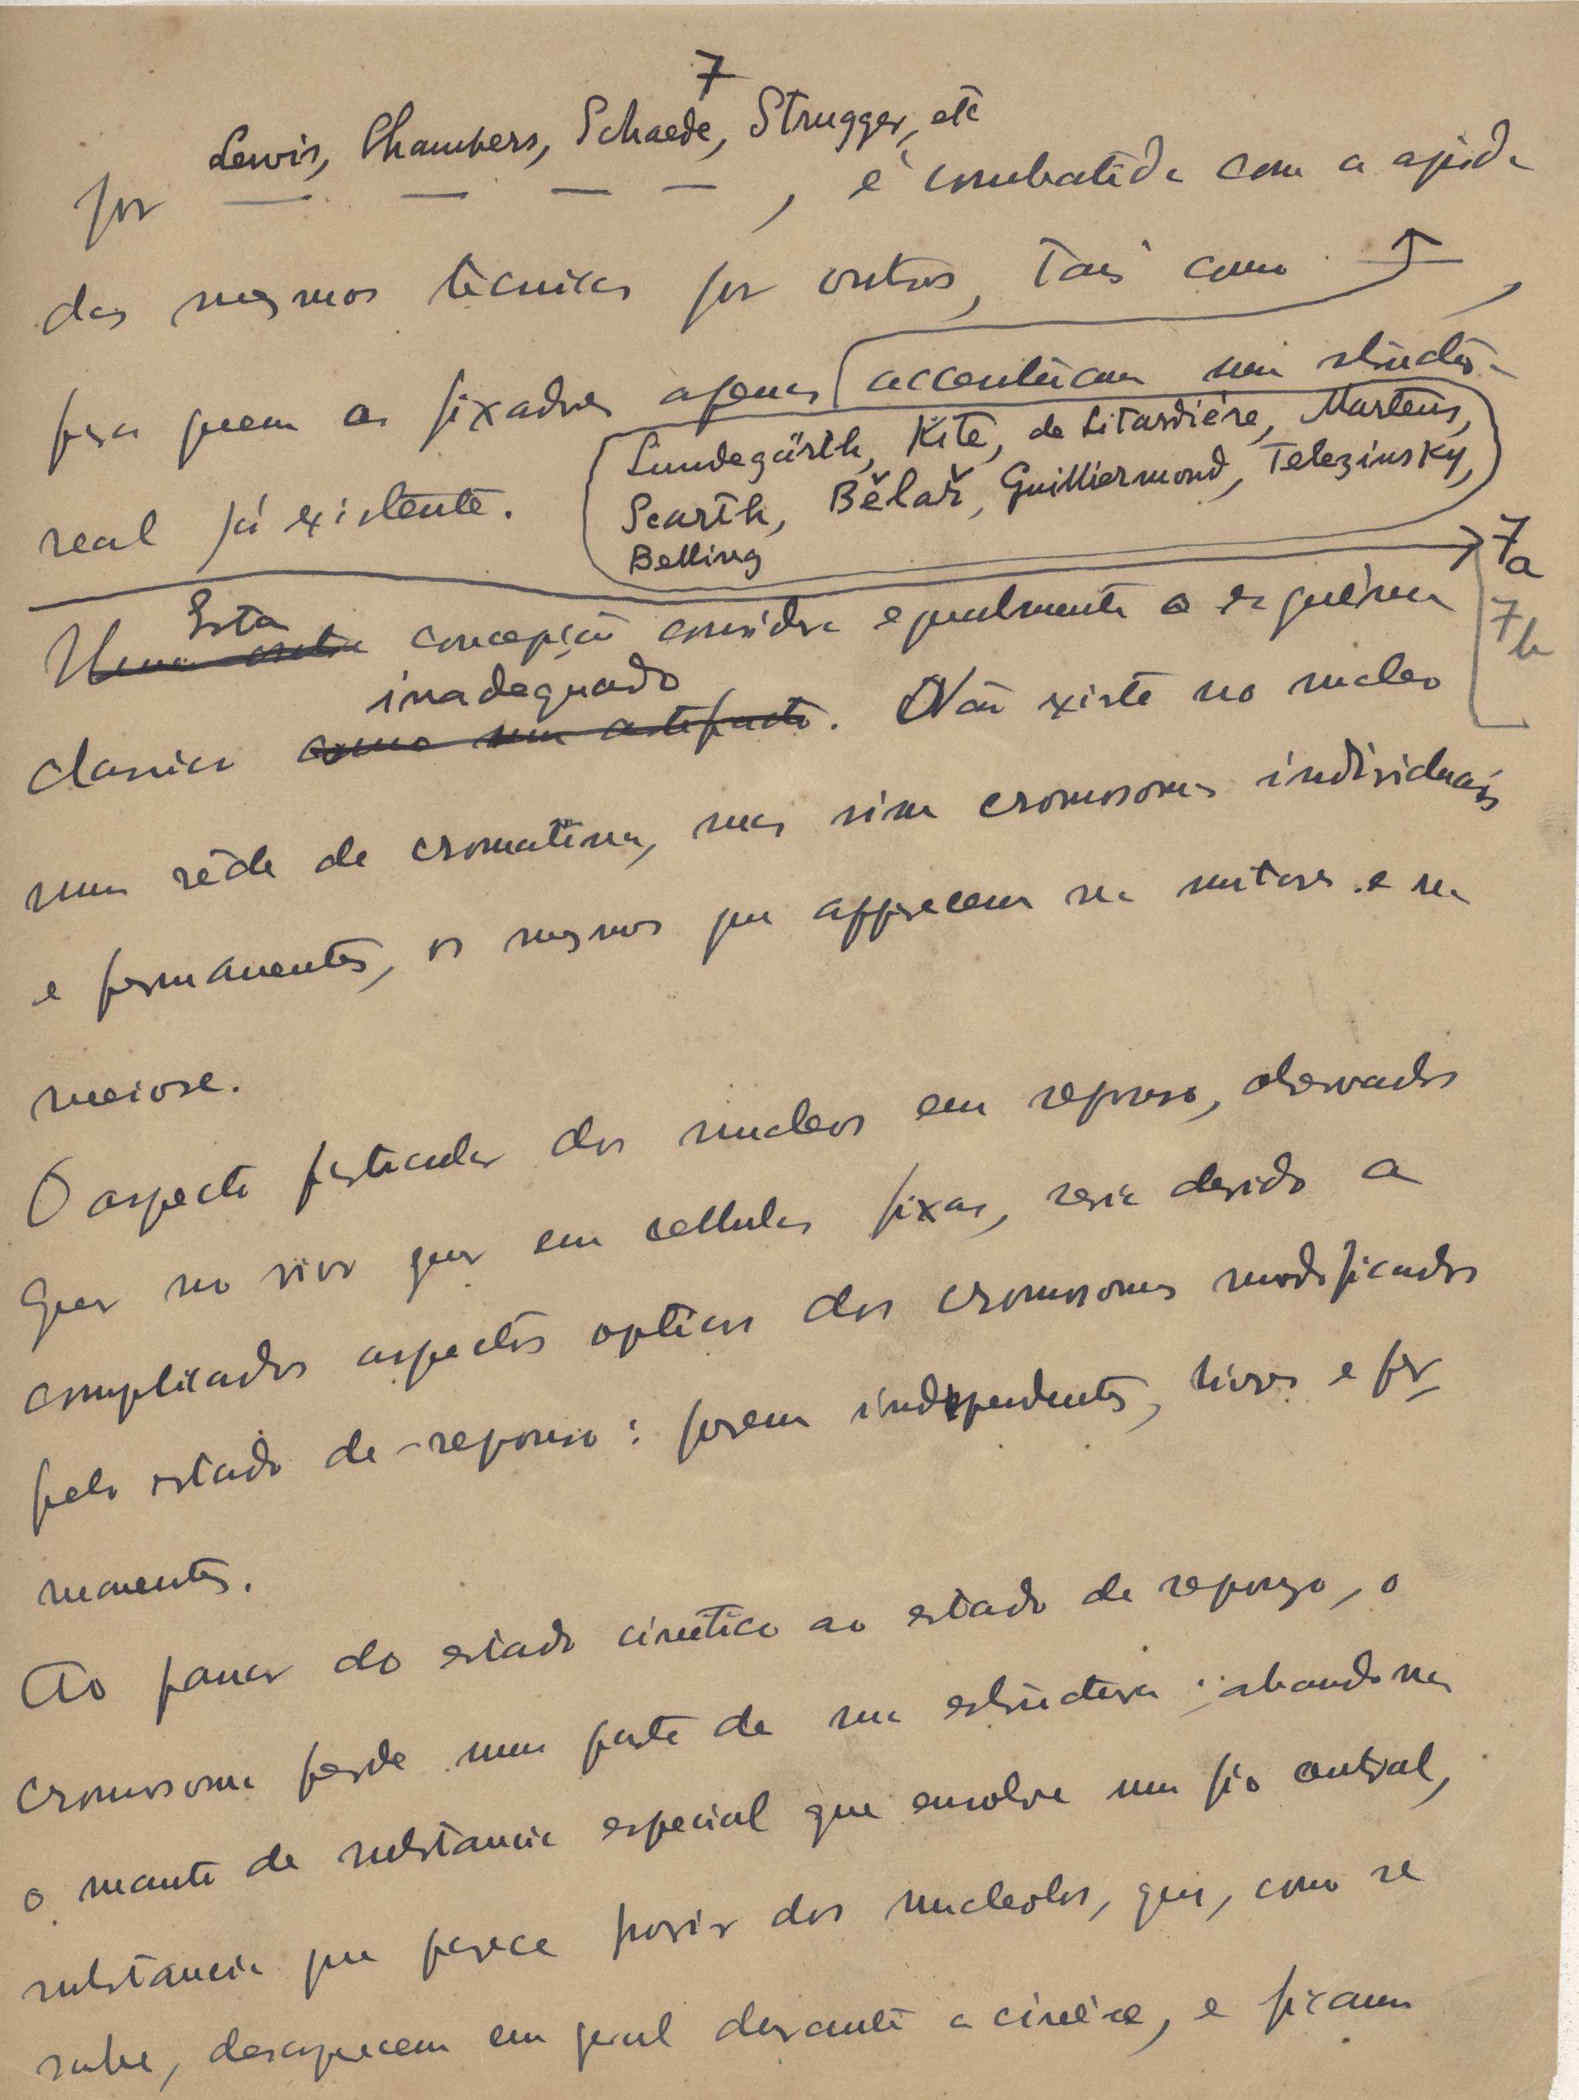 7
Lewis, Chambers, Schaede, Strugger, etc
por — — — — , é combatida com a ajuda
das mesmas tecnicas por outros, tais como ,
para quem os fixadores apenas accentuam uma structura
real já existente.
Lundegårth, Kite, de Litardiére, Martens,
Scarth, Bělař, Guilliermond, Telezinsky,
Belling
7a
7b
Esta
Uma outra concepção considera egualmente o esquema
inadequado
classico como um artefacto. Não existe no nucleo
uma rêde de cromatina, mas sim cromosomas individuais
e permanentes, os mesmos que apparecem na mitose e na
meiose.
O aspecto particular dos nucleos em repouso, observados
quer no vivo quer em cellulas fixas, seria devido a
complicados aspectos opticos dos cromosomas modificados
pelo estado de repouso: porem independentes, livres e per-
manentes.
Ao passar do estado cinetico ao estado de repouso, o
cromosoma perde uma parte de sua estructura: abandona
o manto de substancia especial que envolve um fio central,
substancia que parece provir dos nucleolos, que, como se
sabe, desapparecem em geral durante a cinése, e ficam